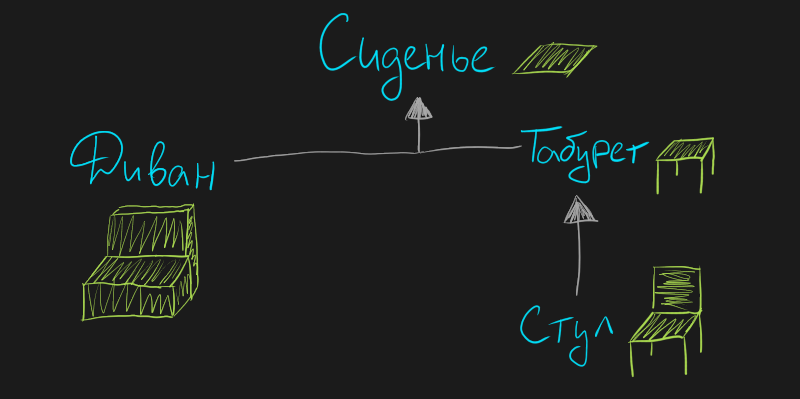 Сиденье
Диван
Табурет
Стул